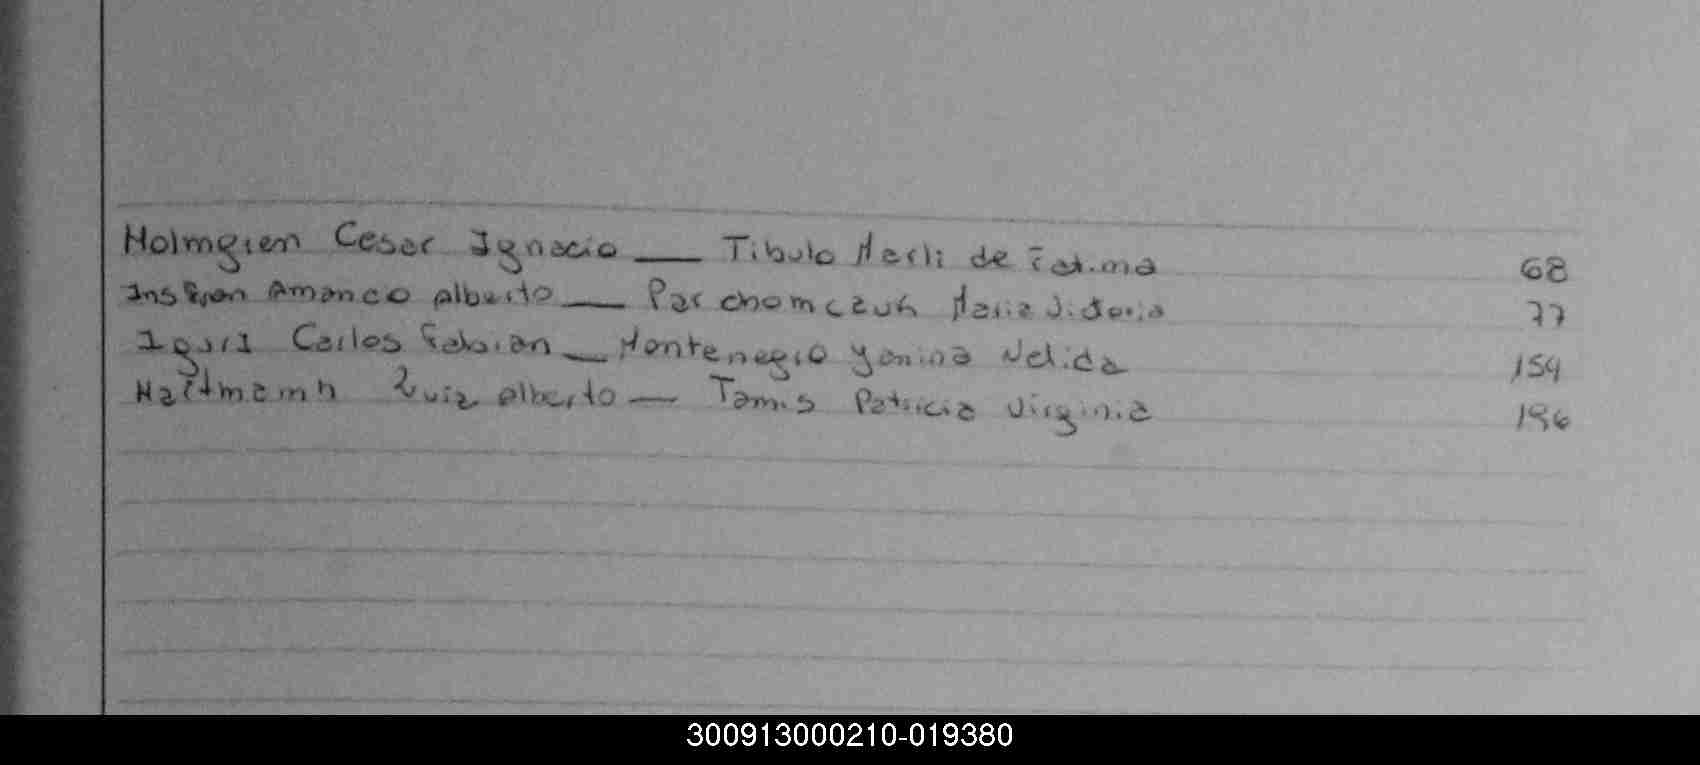 Holmgren Cesar Ignacio — Tibulo Merli de Fatima 68
Amanco Alberto — Parchomczuk Maria Victoria 77
Carlos Fabian — Montenegro Yanina Nelida 154
Hartmamn Luiz Alberto — Tamis Patricia Virginia 196
300913000210-019380